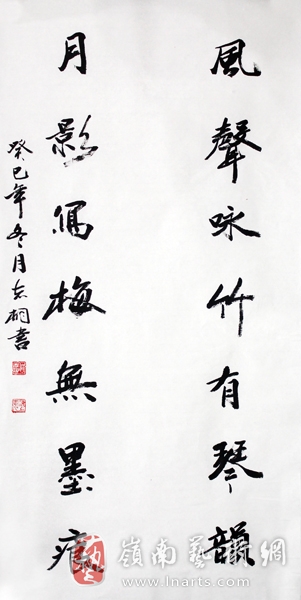 風聲咏竹有琴韻
月影寫梅無墨痕
癸巳年冬月志桐書
嶺南藝術網
www.lnarts.com